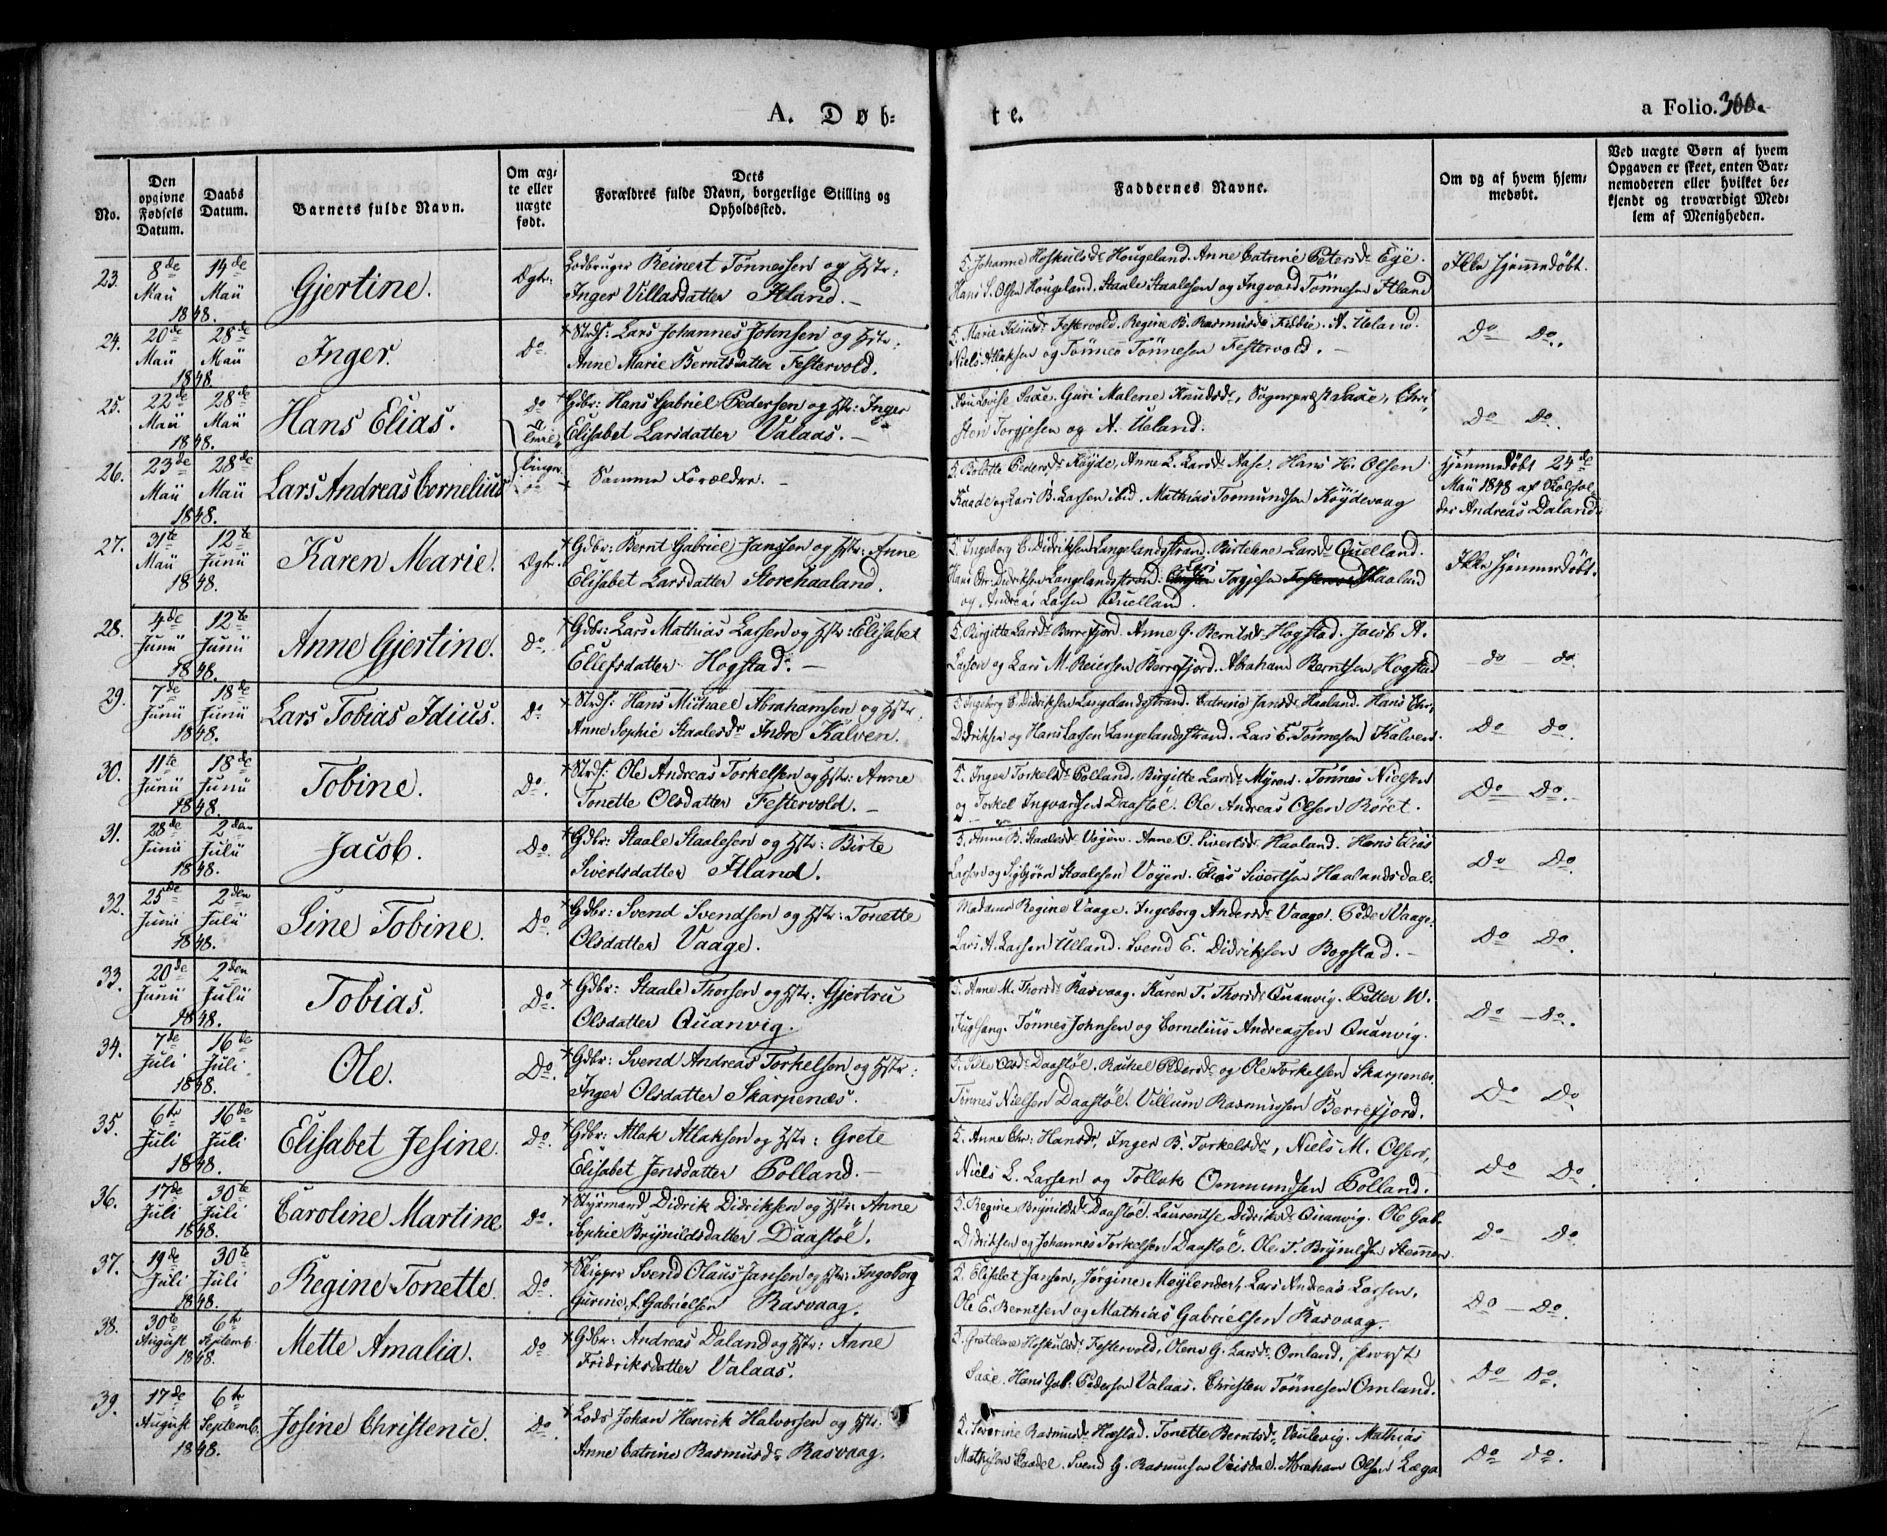 A. Døb-
te.
a Folio. 300a
No.
Den opgivne Fødsels Datum.
Daabs Datum.
Barnets fulde Navn.
Om ægte eller uægte født.
Dets Forældres fulde Navn, borgerlige Stilling og Opholdssted.
Faddernes Navne.
Om og af hvem hjemmedøbt.
Ved uægte Børn af hvem Opgaven er skeet, enten Barnemoderen eller hvilket bekjendt og troværdigt Medlem af Menigheden.
23. 8de Maii 14de Maii 1848. Gjertine. Ægte:
Reinert Tønnessen og Hstr:
Inger Villasdatter Aaland.
Johanne Hoskulsdr Hougeland. Anne Catrine Petersdr Eye.
Hans S. Olsen Hougeland. Staale Staalesen og Ingvard Tønnesen Aaland
Ikke hjemmedøbt.
24. 20de Maii 28de Maii 1848 Inger. Do
Strds: Lars Johannes Johnsen og Hstr:
Anne Marie Berntsdatter Festervold.
Marie Festervold. Regine B. Rasmusdr A. Ueland.
Niels Atlaksen og Tønnes Tønnesen Festervold.
Do Do.
25. 22de Maii 28de Maii 1848. Hans Elias. Do
Gdbr: Hans Gabriel Pedersen og Hstr: Inger
Elisabet Larsdatter Valaas.
Louise Saxe. Guri Malene Knudsdr, Sogneprest Saxe, Chri-
sten Torgjesen og A. Ueland.
Do Do.
26. 23de Maii 28de Maii 1848. Lars Andreas Cornelius Tvillinger
Samme Forældre.
Pedersdr Røyde, Anne L. Larsdr Aase. Hans H. Olsen
og Lars B. Larsen ibid. Mathias Tormundsen Røydevaag
hjemmedøbt 24de
Maii 1848 af Skolehol-
der Andreas Daland.
27. 31te Maii 12te Junii 1848. Karen Marie. Ægte.
Gdbr: Bernt Gabriel Janssen og Hstr: Anne
Elisabet Larsdatter Storehaaland.
Ingeborg C. Didriksen Langelandsstrand. Larsdr Quelland.
Hans Chr: Didriksen Langelandsstrand: Lars Haaland
og Andreas Larsen Quelland.
Ikke hjemmedøbt.
28. 4de Junii 12te Junii 1848. Anne Gjertine. do.
Gdbr: Lars Mathias Larsen og Hstr: Elisabet
Ellefsdatter Hogstad.
Birgitte Larsdr Berrefjord. Anne G. Berntsdr Hogstad. Jacob A.
Larsen og Lars M. Reiersen Berrefjord. Abraham Berntsen Hogstad
do do.
29. 7de Junii 18de Junii 1848. Lars Tobias Idius. Do
Strds: Hans Michael Abrahamsen og Hstr.
Anne Sophie Staalesdr Indre Kalven.
Ingeborg C. Didriksen Langelandsstrand. Catrine Jansdr Haaland. Hans Chr:
Didriksen og Hans Larsen Langelandsstrand. Lars E. Tønnesen Kalven.
Do Do.
30. 11te Junii 18de Junii 1848. Tobine. Do.
Strds: Ole Andreas Torkelsen og Hstr: Anne
Tonette Olsdatter Festervold.
Inger Torkelsdr Polland. Birgitte Larsdr Myren. Tønnes Nielsen
og Torkel Ingvardsen Daastøl. Ole Andreas Olsen Røret.
Do Do.
31. 28de Junii 2den Julii 1848. Jacob. Do.
Gdbr: Staale Staalesen og Hstr: Birte
Sivertsdatter Aaland.
Anne B. Staalesdr Vøyen. Anne O. Sivertsdr Haaland. Hans Elias
Larsen og Sigbjørn Staalesen Vøyen. Elias Sivertsen Haalandsdal.
Do Do.
32. 25de Junii 2den Julii 1848. Sine Tobine. Do.
Gdbr: Svend Svendsen og Hstr: Tonette
Olsdatter Vaage.
Madame Regine Vaage. Ingeborg Andersdr Vaage. Peder Vaage.
Lars A. Larsen Ueland. Svend E. Didriksen Bogstad.
Do Do.
33. 20de Junii 2den Julii 1848. Tobias. Do.
Gdbr: Staale Thorsen og Hstr. Gjertrue
Olsdatter Quanvig.
Anne M. Thorsdr Rasvaag. Karen T. Thorsdr Quanvig. Petter W.
Fuglsang. Tønnes Johnsen og Cornelius Andreassen Quanvig.
Do Do.
34. 7de Juli 16de Juli 1848. Ole. Do.
Gdbr: Svend Andreas Torkelsen og Hstr:
Inger Olsdatter Skarpenæs.
Olsdr Daastøl. Rachel Pedersdr og Ole Torkelsen Skarpenæs.
Tønnes Nielsen Daastøl. Villum Rasmussen Berrefjord.
Do Do.
35. 6te Juli 16de Juli 1848. Elisabet Jesine. Do.
Gdbr: Atlak Atlaksen og Hstr: Grete
Elisabet Jensdatter Polland.
Anne Chr: Hansdr, Inger B. Torkelsdr, Niels M. Olsen,
Niels L. Larsen og Tollak Ommundsen Polland.
Do Do.
36. 17de Juli 30te Juli 1848. Caroline Martine Do.
Styrmand Didrik Didriksen og Hstr: Anne
Sophie Brynildsdatter Daastøl.
Regine Brynildsdr Daastøl. Laurentse Didriksdr Quanvig. Ole Gab.
Didriksen og Johannes Torkelsen Daastøl. Ole T. Brynildsen
Do Do.
37. 19de Juli 30te Juli 1848. Regine Tonette. Do.
Skipper Svend Olaus Jansen og Hstr: Ingeborg
Gurine, f. Gabrielsen Rasvaag.
Elisabet Jansen, Jørgine Meylender, Lars Andreas Larsen,
Ole E. Berntsen og Mathias Gabrielsen Rasvaag.
Do Do.
38. 30te August 6te Septemb. 1848. Mette Amalia. Do
Gdbr: Andreas Daland og Hstr: Anne
Fridriksdatter Valaas.
Gretelene Hoskulsdr Festervold, Olene G. Larsdr Omland, Provst
Saxe. Hans Gab. Pedersen Valaas. Christen Tønnesen Omland.
Do Do.
39. 17de August 6te Septemb. 1848. Josine Christence. Do.
Lods Johan Henrik Halvorsen og Hstr.
Anne Catrine Rasmusdr Rasvaag.
Severine Rasmusdr Hæstad. Tonette Berntsdr, Mathias
Mathisen Svend G. Rasmussen Veisdal. Abraham Olsen Læga
Do Do.